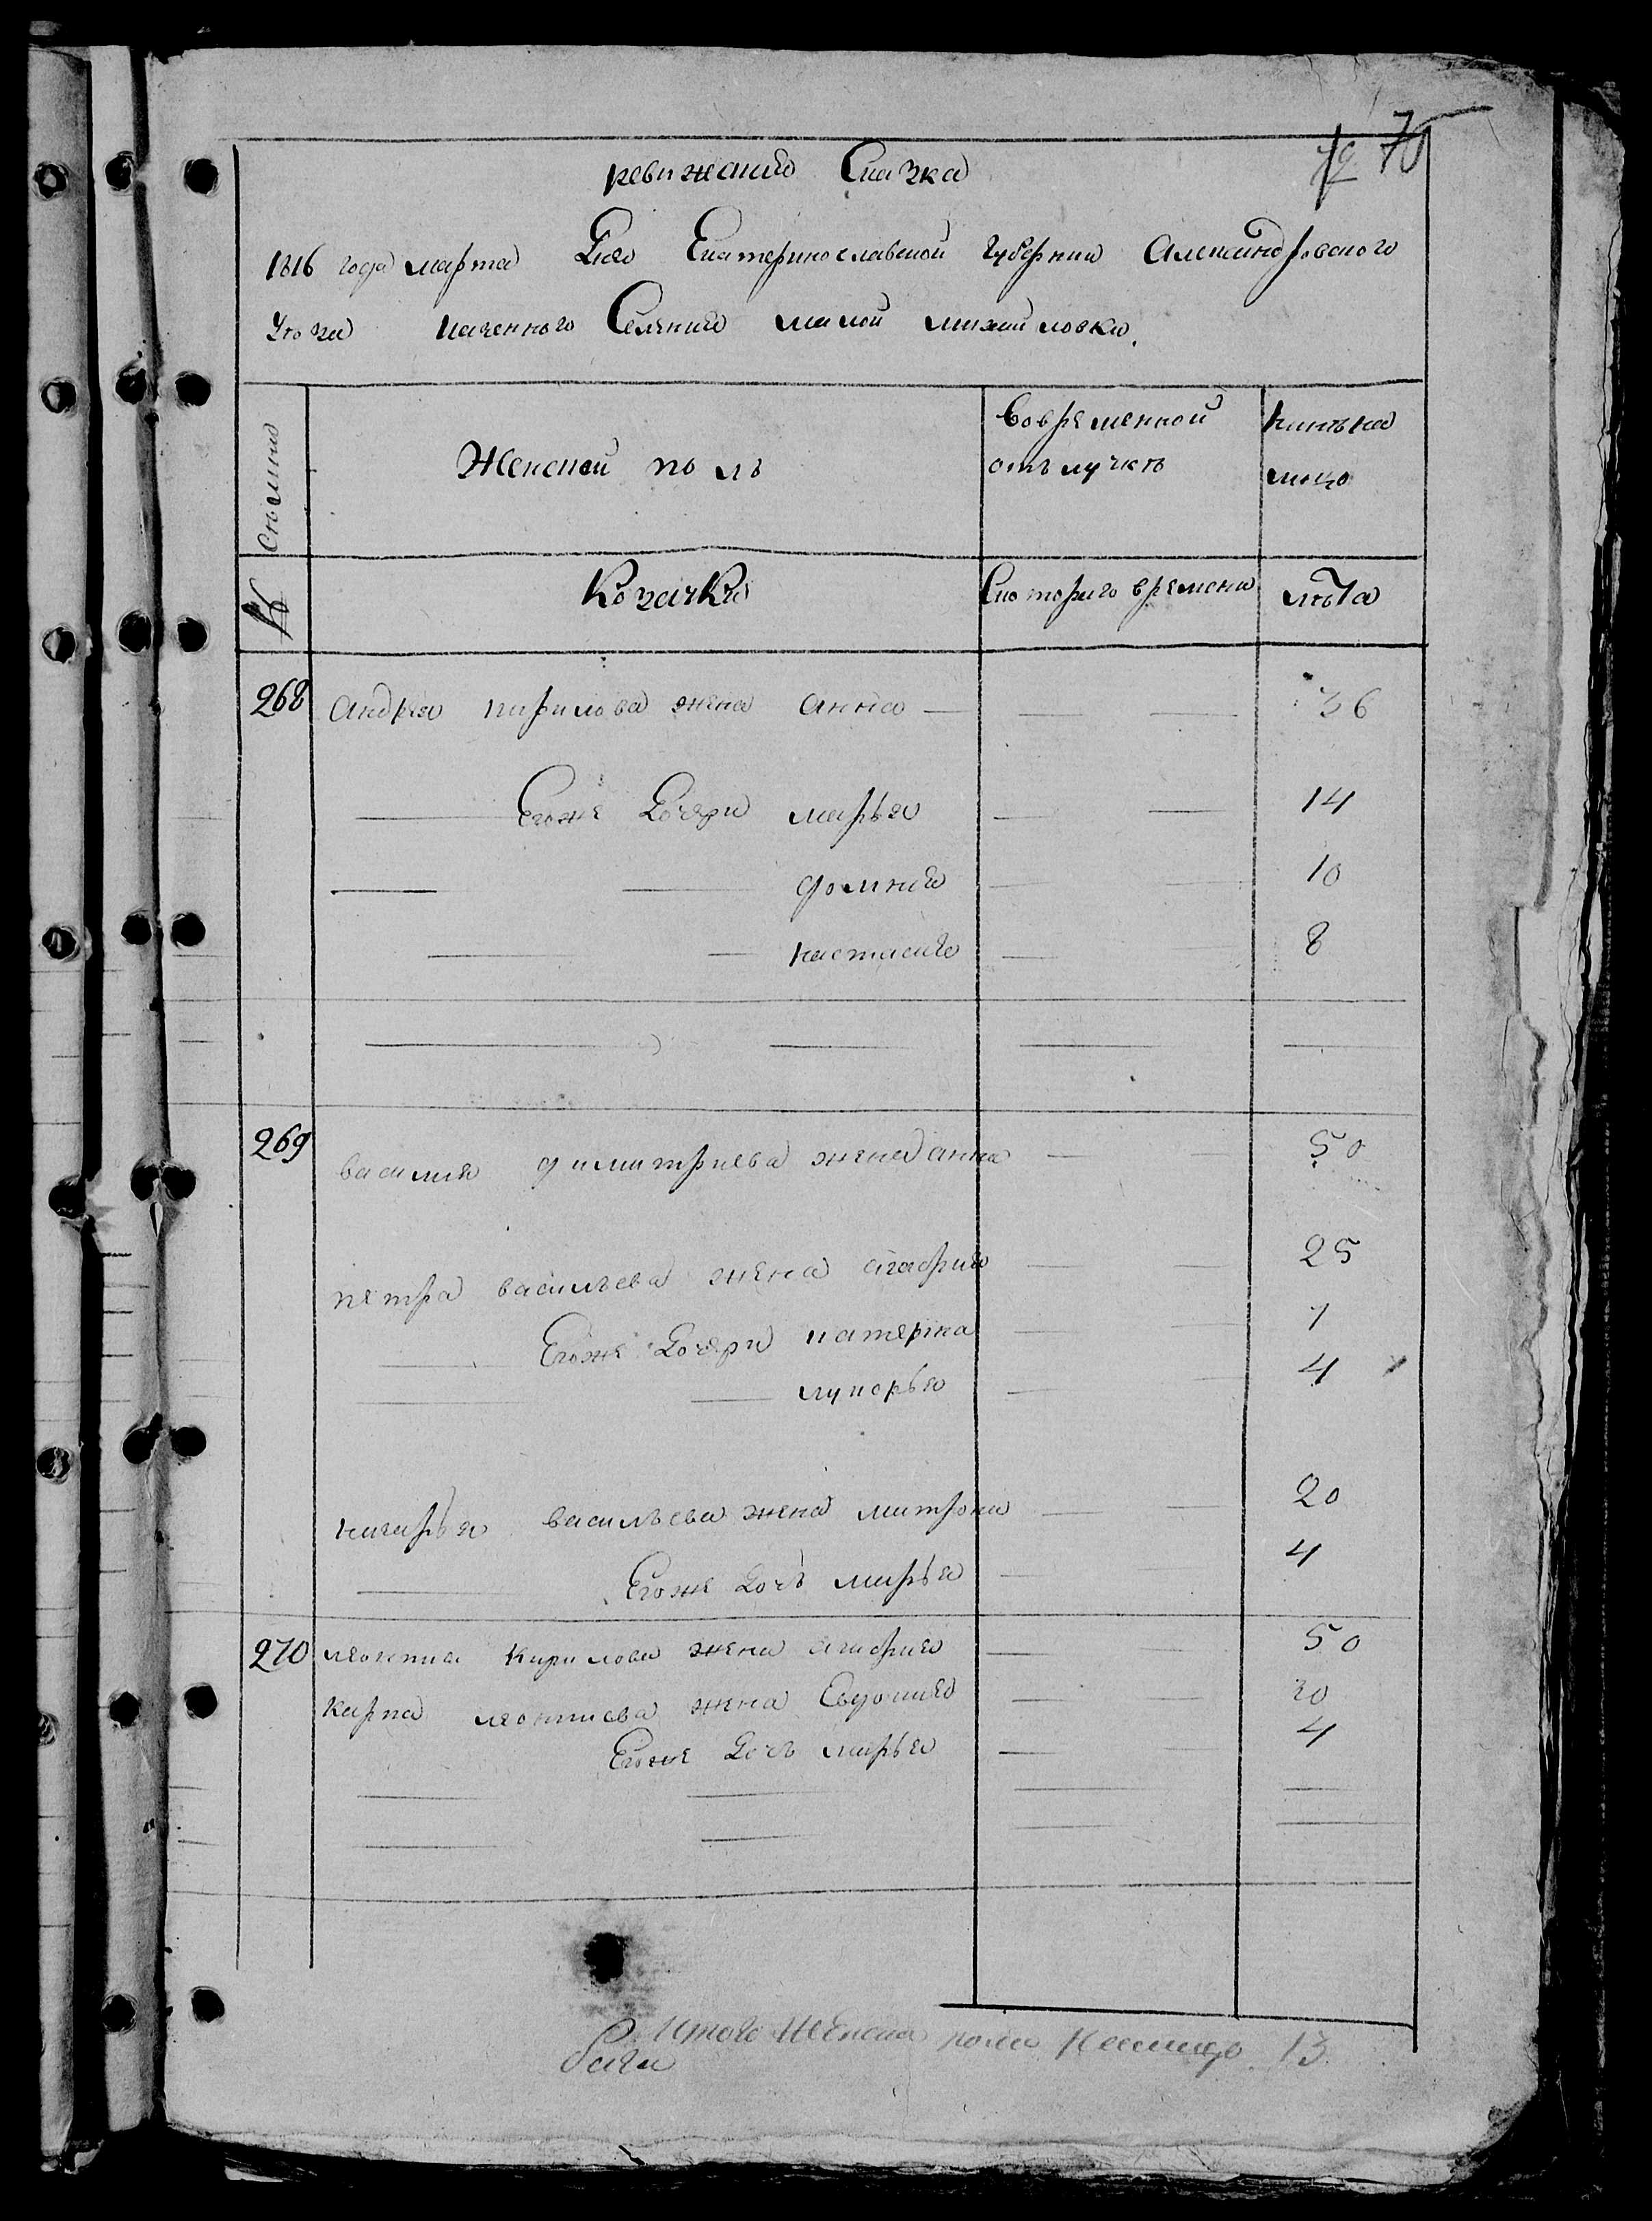 70
ревижския Сказка
1816 года марта Дня Екатеринославской губернии Александровского
Уезда казенного Селения малой михайловки.
Семьи
Женской полъ
Вовременной
отълучкѣ
нинѣ на
лицо
№
Козачки
Скоторого времени
лѣта
268 андрея кирилова жена анна — 36
Егоже Дочери марья 14
домния 10
настасия 8
269
василия димитриева жена анна 50
петра васильева жена агафия 25
Егоже Дочери катерина 7
лукерья 4
назарья васильева жена матрона 20
Егоже Дочь марья 4
270 леонтия Кирилова жена агафия 50
Карпа леонтиева жена Евдокия 20
Егоже Дочь марья 4
Итого Женска пола Налицо 13